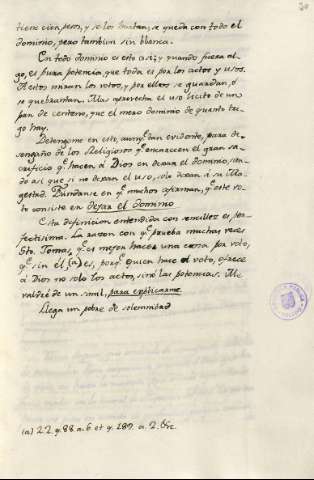 20
tiene cien pesos, y se los hurtan, se queda con todo el
dominio, pero tambien sin blanca.
En todo dominio es esto asi; y quando fuera al-
go, es pura potencia, que toda es por los actos y usos.
A estos miran los votos, y por ellos se guardan, ó
se quebrantan. Mas aprovecha el uso licito de un
pan de centeno, que el mero dominio de quanto tri-
go hay.
Detengome en esto, aunq.e tan evidente, para de-
sengaño de los Religiosos q.e encarecen el gran sa-
crificio q.e hacen á Dios en dexar el dominio, sien-
do asi que si no dexan el uso, solo dexan á su Ma-
gestad. Fúndanse en q.e muchos afirman, q.e este vo-
to consiste en dexar el dominio
Esta difinicion entendida con sencillez es per-
fectisima. La razon con q.e prueba muchas veces
Sto. Tomas, q.e es mejor hacer una cosa por voto,
q.e sin él (a) es, porq.e quien hace el voto, ofrece
á Dios no solo los actos, sinó las potencias. Me
valdré de un simil, para explicarme
Llega un pobre de solemnidad
(a) 2.2. q. 88. a. 6. et q. 189. a. 2. &c.